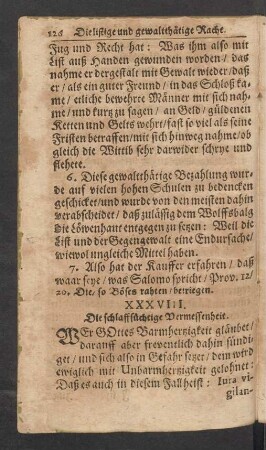 126 Die listige und gewaltthätige Rache.
Fug und Recht hat: Was ihm also mit
List auß Handen gewunden worden/ das
nahme er dergestalt mit Gewalt wieder/ daß
er/ als ein guter Freund/ in das Schloß ka-
me/ etliche bewehrte Männer mit sich nah-
me/ und kurz zu sagen/ an Geld/ güldenen
Ketten und Gelts wehrt/ fast so viel als seine
Fristen betraffen/ mit sich hinweg nahme/ ob
gleich die Wittib sehr darwider schrye und
flehete.
6. Diese gewaltthätige Bezahlung wur-
de auf vielen hohen Schulen zu bedencken
geschicket/ und wurde von den meisten dahin
verabscheidet/ daß zulässig dem Wolffsbalg
die Löwenhaut entgegen zu setzen: Weil die
List und der Gegengewalt eine Endursache/
wiewol ungleiche Mittel haben.
7. Also hat der Kauffer erfahren/ daß
waar seye/ was Salomo spricht/ Prov. 12/
20. Die/ so Böses rahten/ betriegen.
Die schlaffsüchtige Vermessenheit.
WEr GOttes Barmhertzigkeit gläubet/
darauff aber freventlich dahin sündi-
get/ und sich also in Gefahr setzet/ dem wird
ewiglich mit Unbarmhertzigkeit gelohnet:
Daß es auch in diesem Fall heist: Iura vi-
gilan-